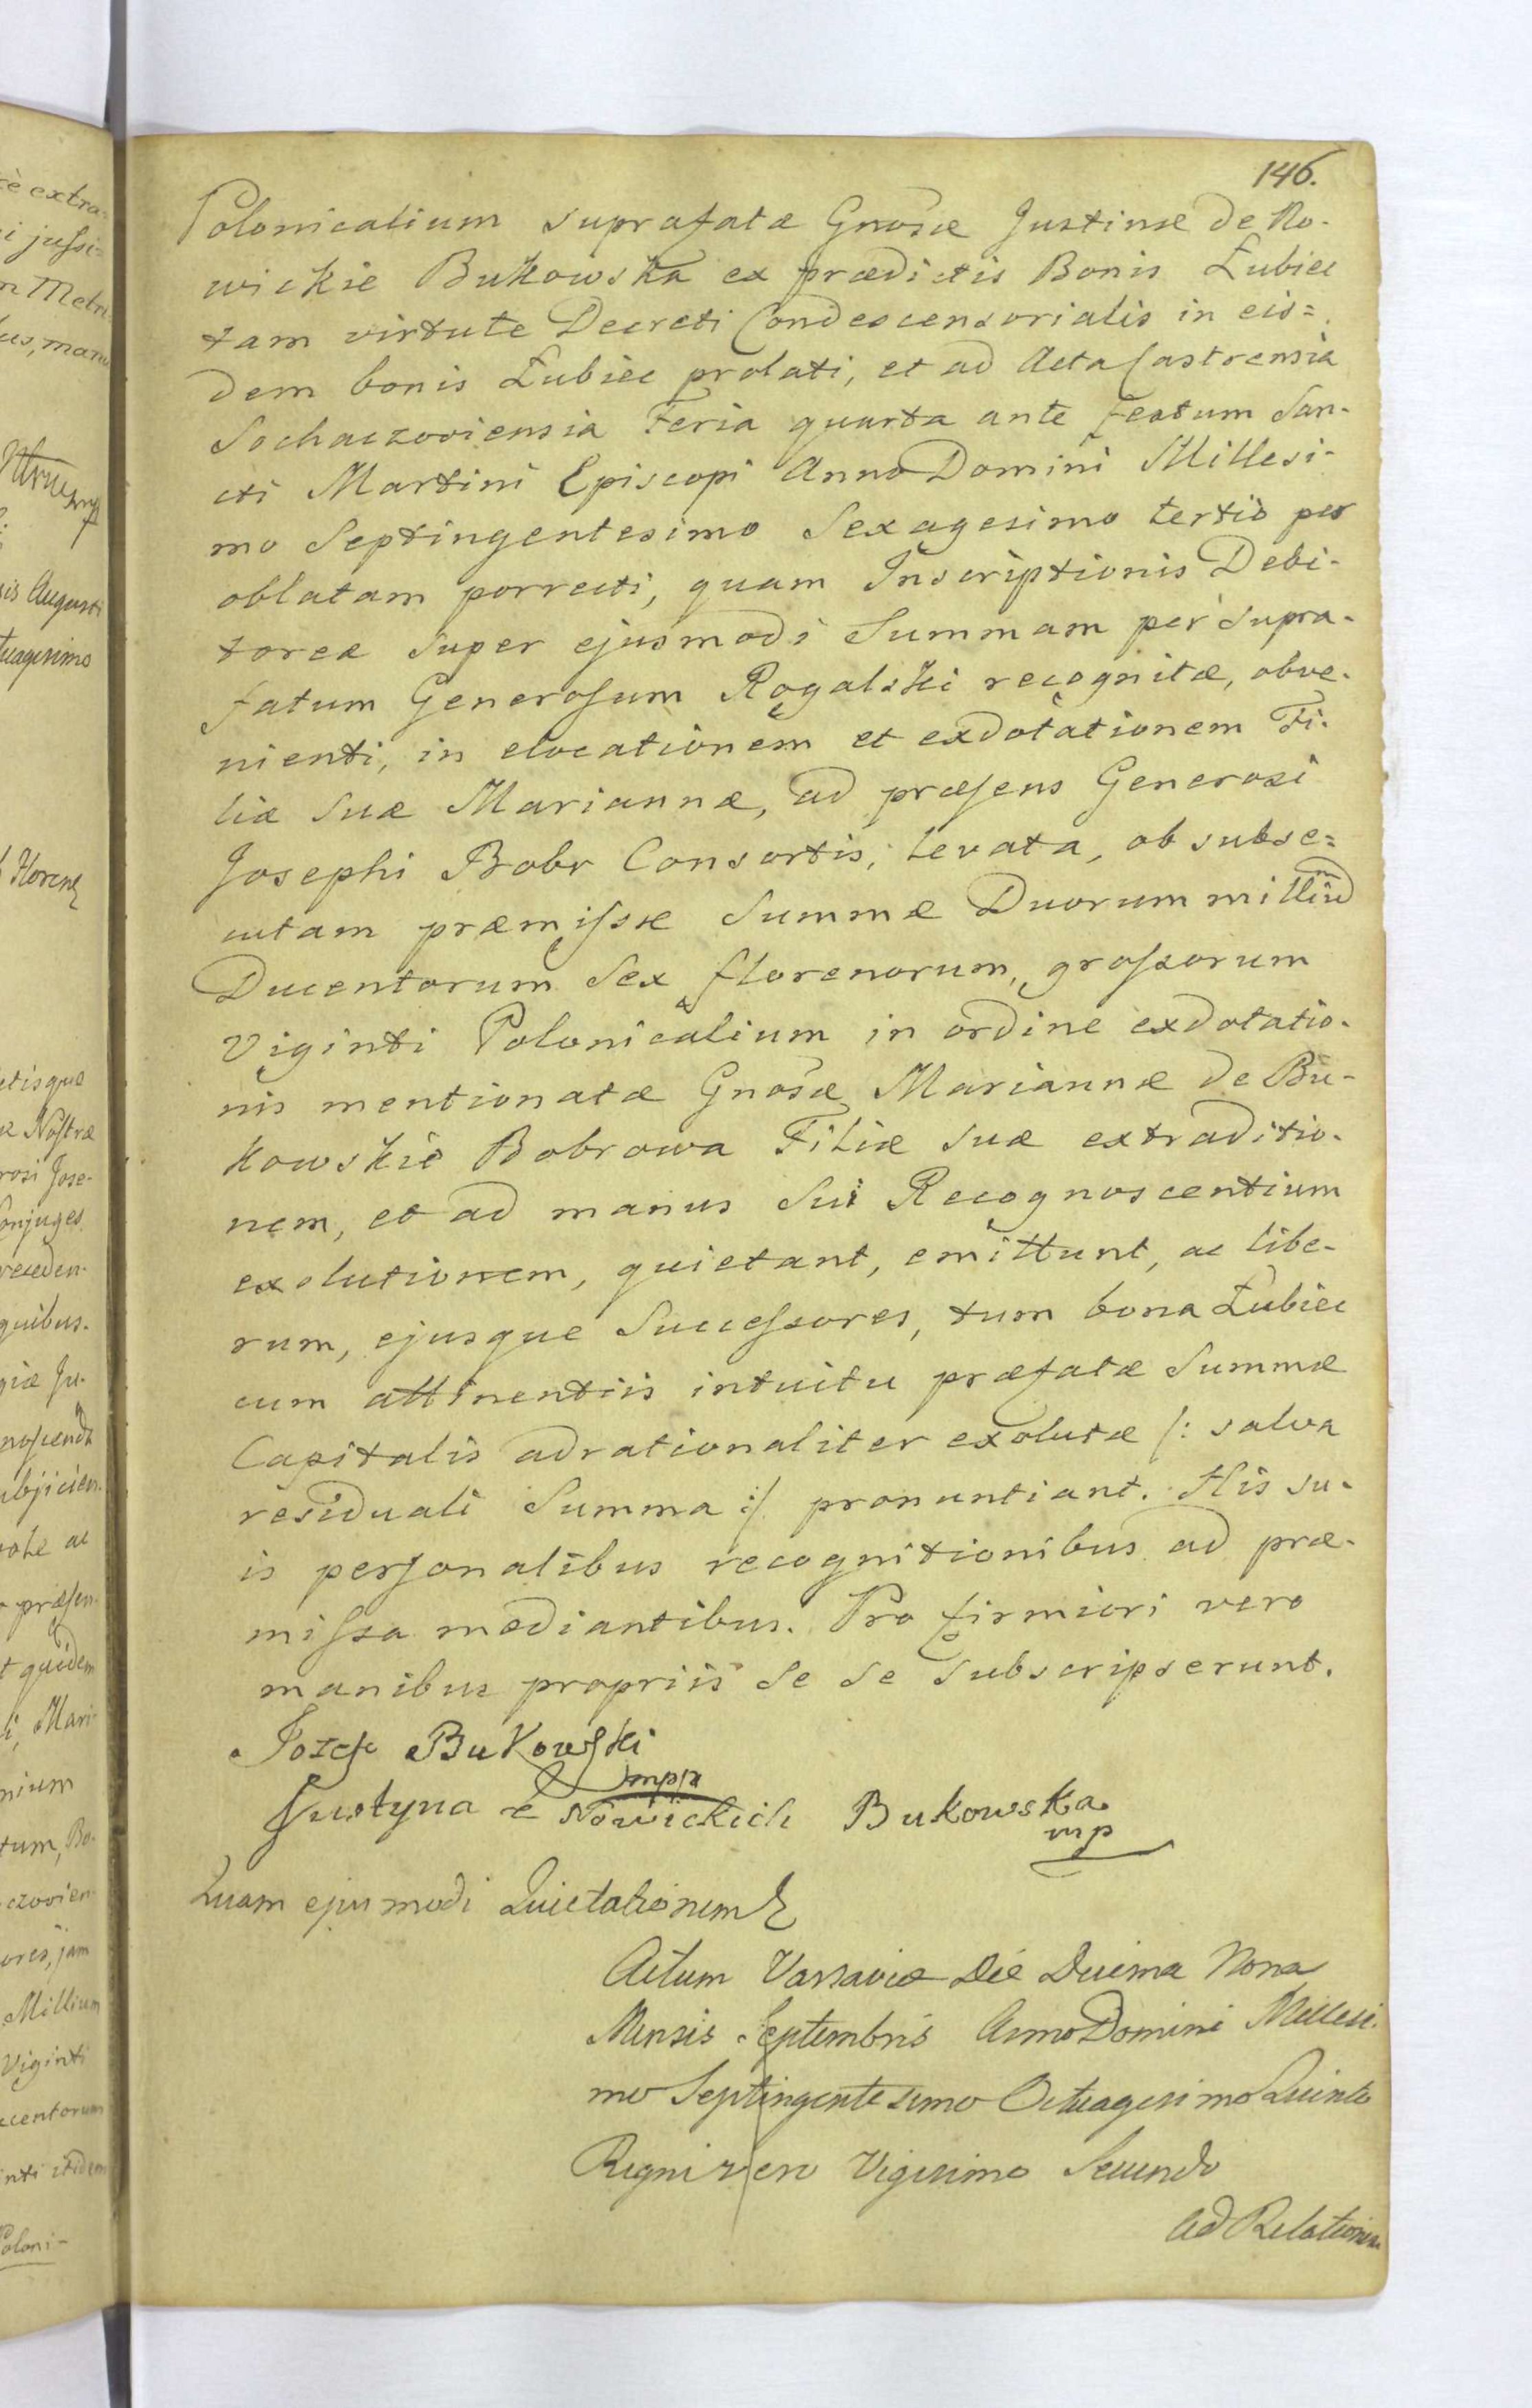 146.
Polonicalium suprafatæ Gnosæ Justinæ de No-
wickie Bukowska ex prædictis Bonis Łubiec
tam virtute Decreti Condescensorialis in eis=
dem bonis Łubiec prolati, et ad Acta Castrensia
Sochaczoviensia Feria quarta ante festum San-
cti Martini Episcopi Anno Domini Millesi-
mo Septingentesimo Sexagesimo tertio per
oblatam porrecti, quam Inscriptionis Debi-
toreæ super ejusmodi Summam per supra-
fatum Generosum Rogalski recognitæ, obve-
nienti, in elocationem et exdotationem Fi-
liæ suæ Mariannæ, ad præsens Generosi
Josephi Bobr Consortis, levata, ob subse=
cutam præmissæ Summæ Duorum milliũ
Ducentorum Sex florenorum, grossorum
Viginti Polonicalium in ordine exdotatio-
nis mentionatæ Gnosæ Mariannæ de Bu-
kowskie Bobrowa Filiæ suæ extraditio-
nem, et ad manus Sui Recognoscentium
exolutionem, quietant, emittunt, ac libe-
rum, ejusque Successores, tum bona Łubiec
cum attinentiis intuitu præfatæ Summæ
Capitalis adrationaliter exolutæ /: salva
residuali Summa :/ pronuntiant. His su-
is personalibus recognitionibus ad præ-
missa mediantibus. Pro firmiori vero
manibus propriis Se Se subscripserunt.
Jozef Bukowski
mppa
Justyna z Nowickich Bukowska
mp
Quam ejusmodi Quietationem
Actum Varsaviæ Die Decima Nona
Mensis Septembris Anno Domini Millesi-
mo Septingentesimo Octuagesimo Quinto
Regni vero Vigesimo Secundo
Ad Relationem